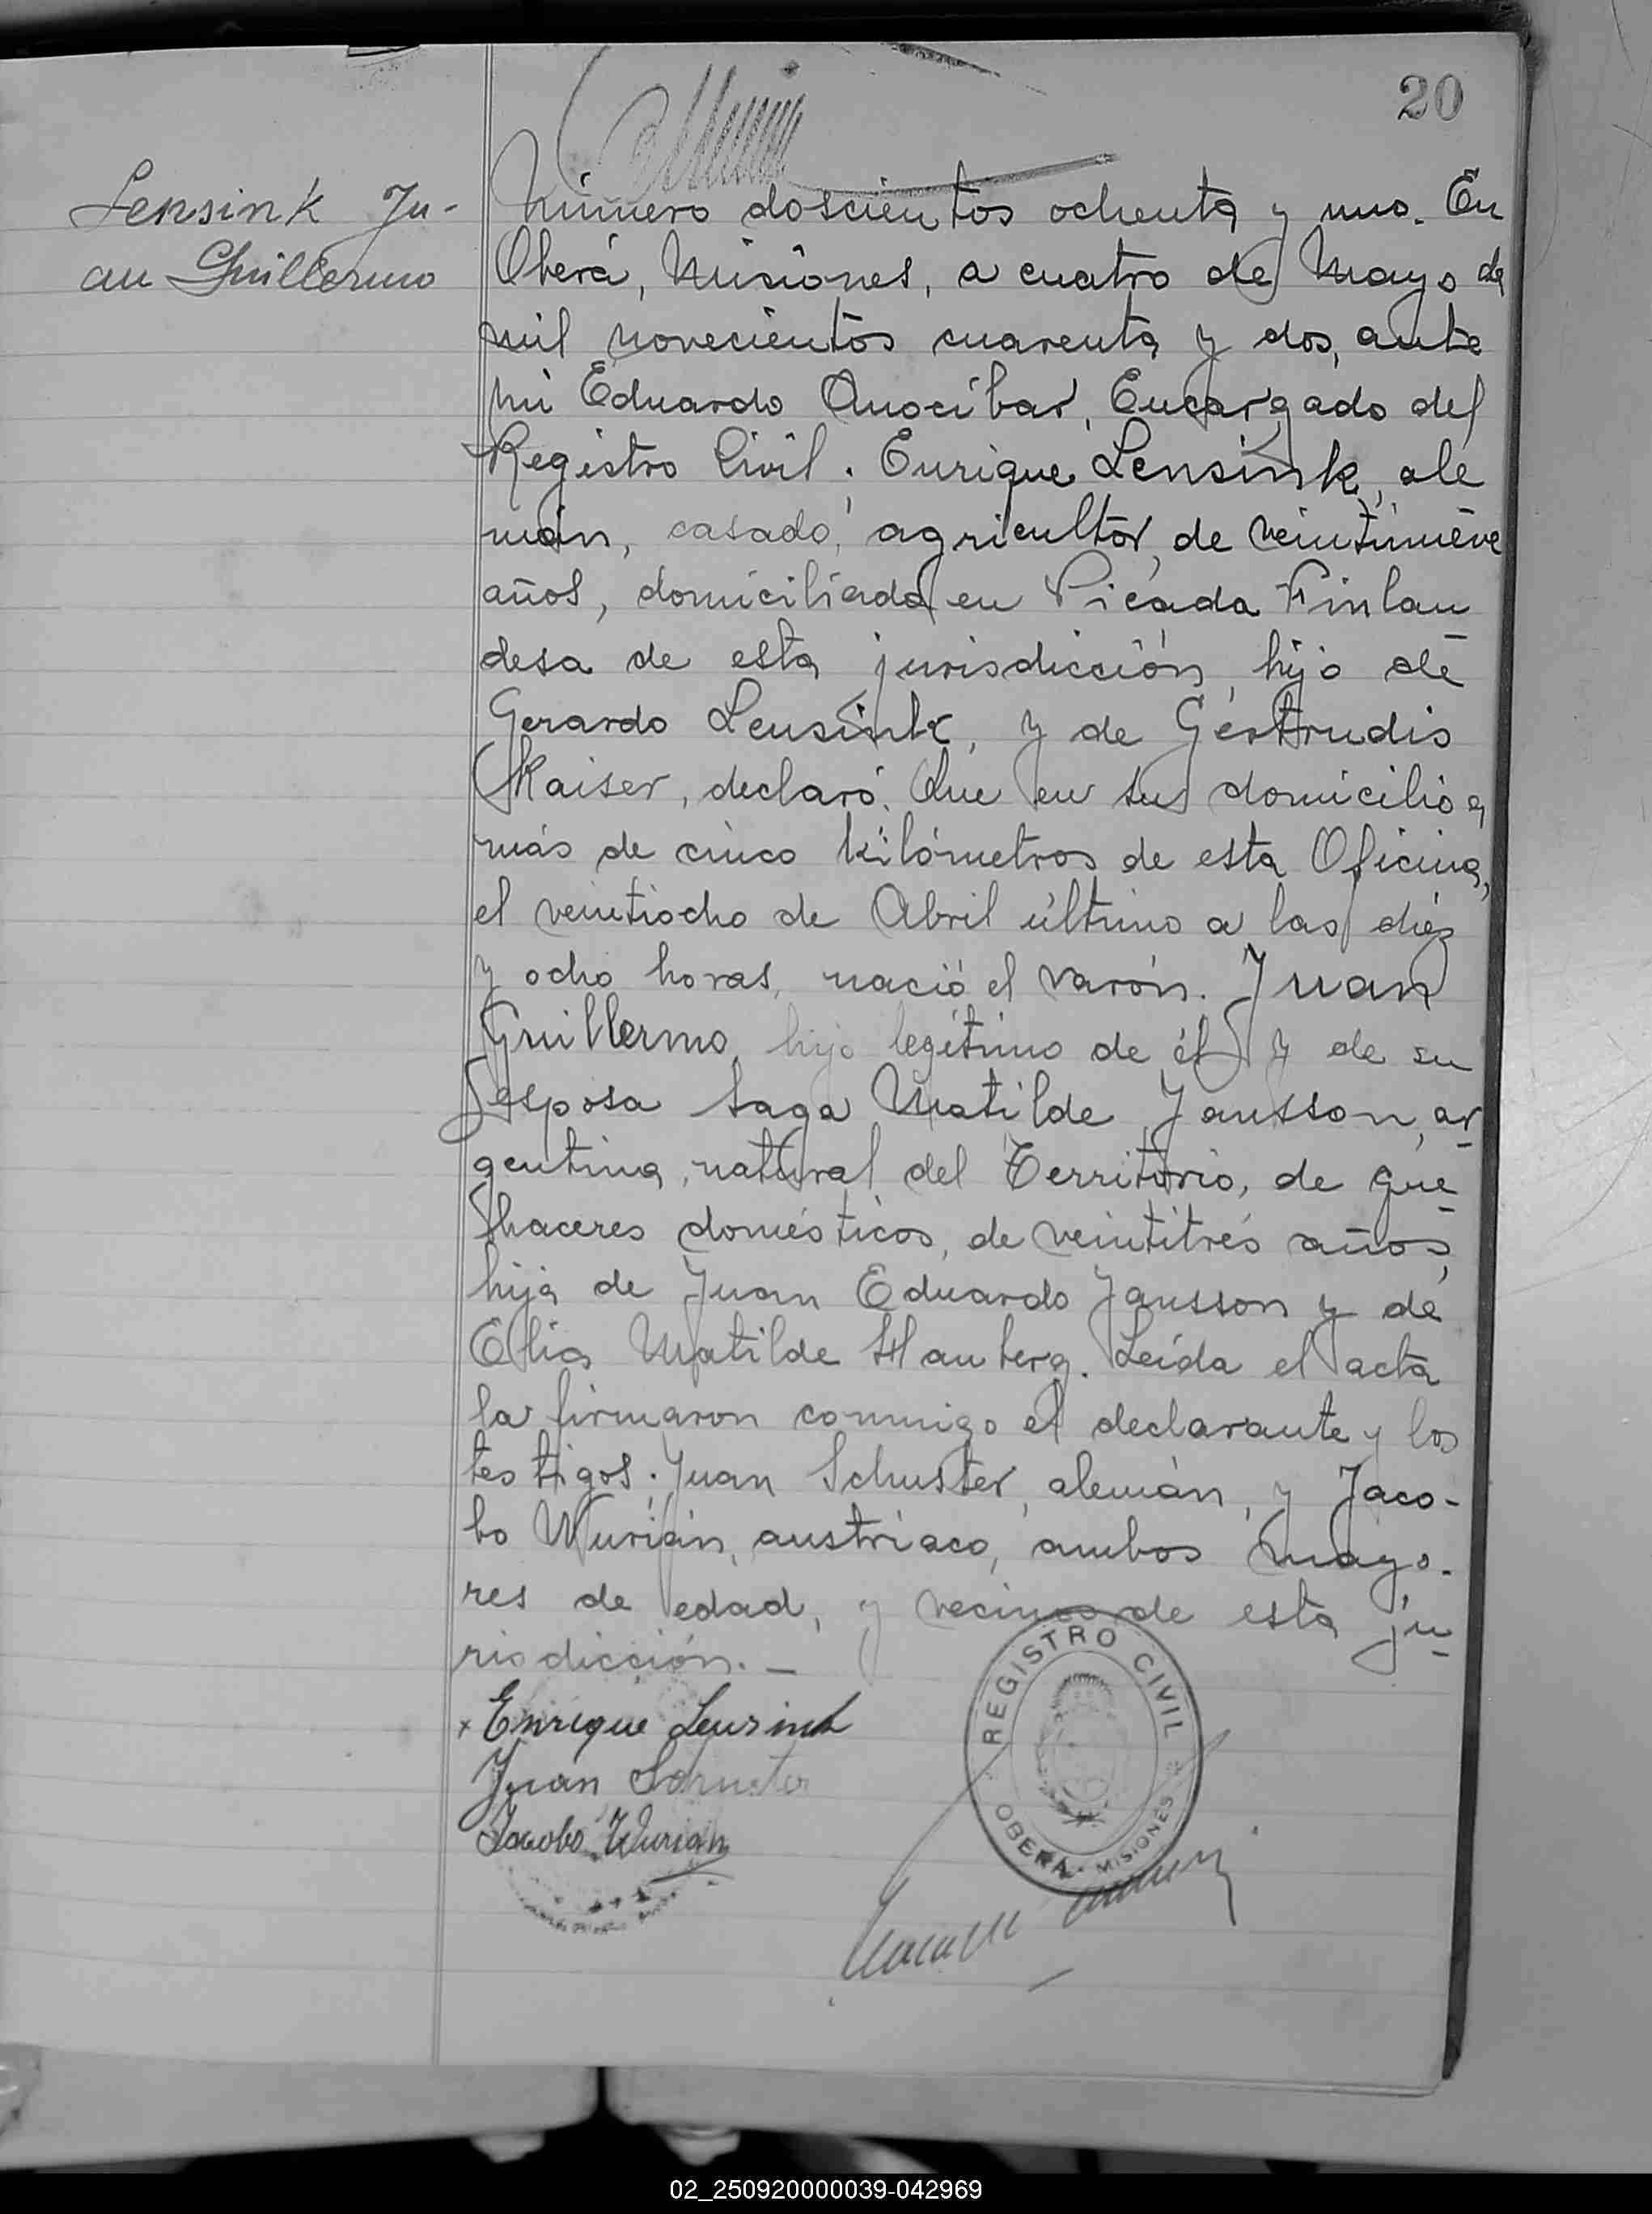 20
Lensink Ju-
an Guillermo
Número doscientos ochenta y uno. En
Oberá, Misiones, a cuatro de Mayo de
mil novecientos cuarenta y dos, ante
mi Eduardo Anocíbar, Encargado del
Registro Civil: Enrique Lensink, ale
mán, casado, agricultor, de veintinueve
años, domiciliado en Picada Finlan
desa de esta jurisdicción, hijo de
Gerardo Lensink, y de Gertrudis
Kaiser, declaró: Que en su domicilio a
más de cinco kilómetros de esta Oficina,
el veintiocho de Abril último a las diez
y ocho horas, nació el varón. Juan
Guillermo, hijo legítimo de él y de su
esposa Saga Matilde Jansson, ar
gentina, natural del Territorio, de que
haceres domésticos, de veintitrés años,
hija de Juan Eduardo Jansson y de
Matilde. Leída el acta
la firmaron conmigo el declarante y los
testigos: Juan Schuster, alemán, y Jaco-
bo Wurián, austriaco, ambos mayo-
res de edad, y vecinos de esta ju
risdicción.-
x Enrique Lensink
Juan Schuster
Jacobo Wurian
REGISTRO CIVIL
OBERÁ - MISIONES
02_250920000039-042969